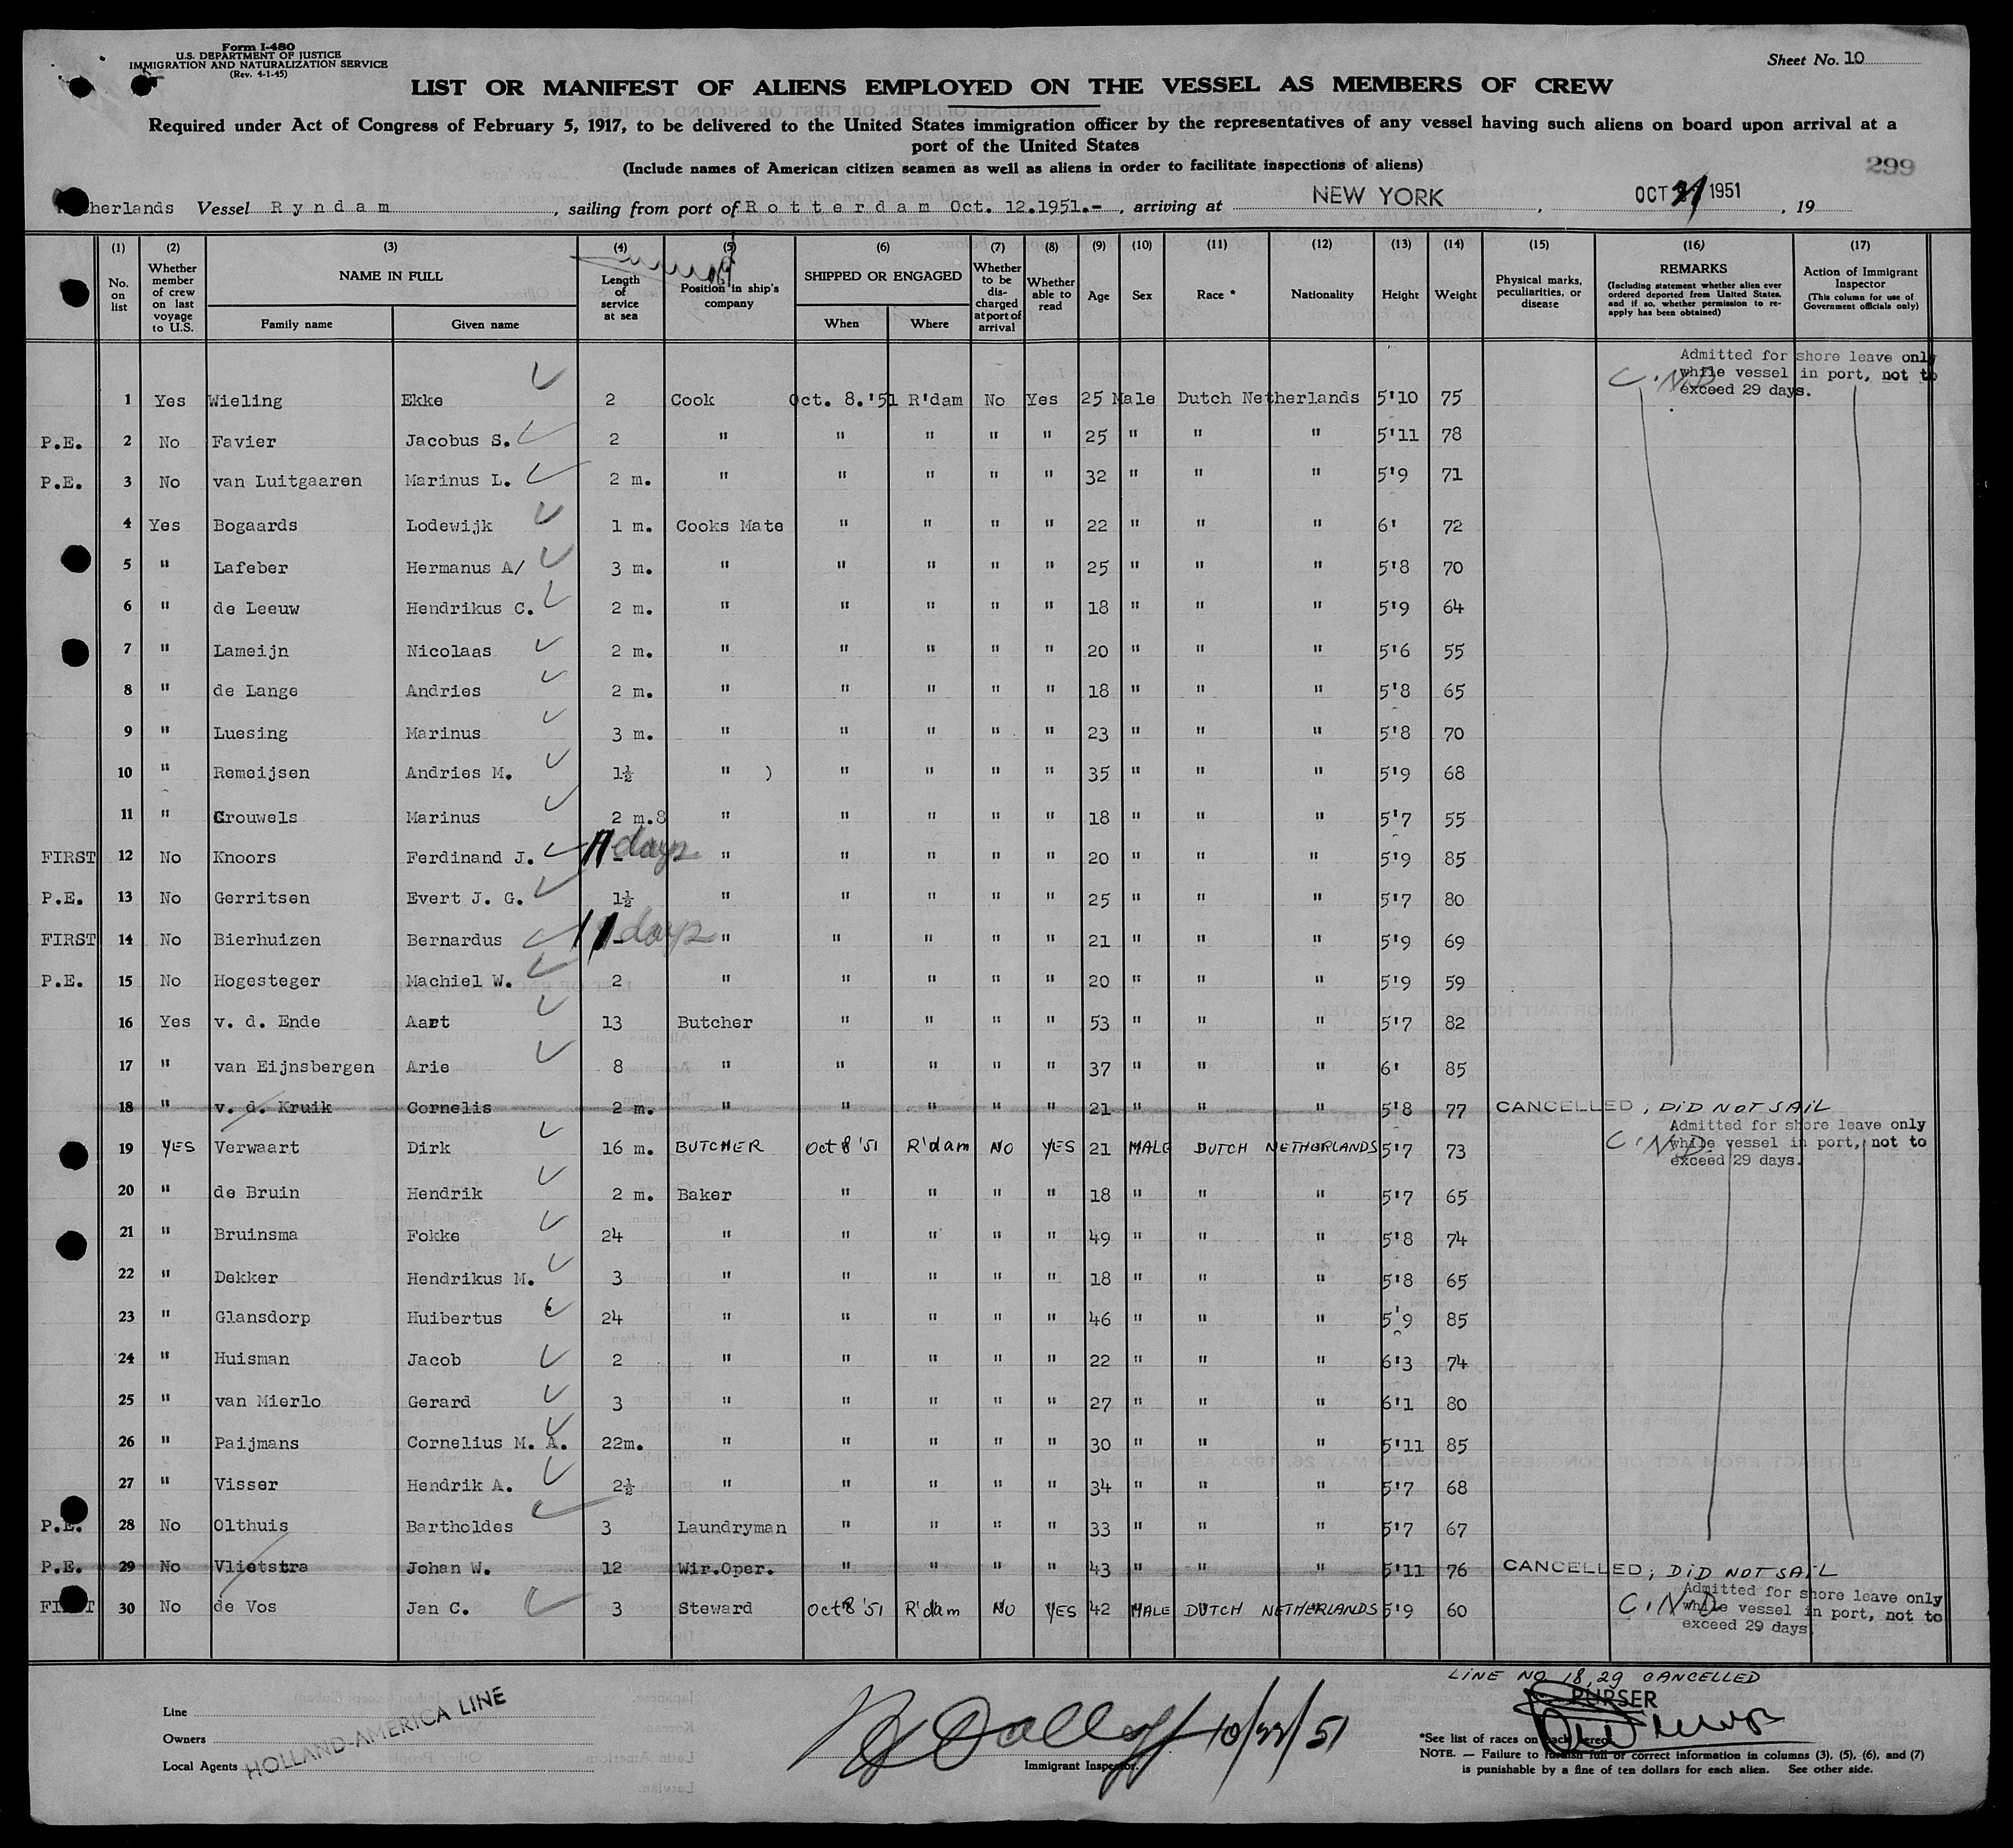 Form I-480
U.S. DEPARTMENT OF JUSTICE
IMMIGRATION AND NATURALIZATION SERVICE
(Rev. 4-1-45)
Sheet No. 10
LIST OR MANIFEST OF ALIENS EMPLOYED ON THE VESSEL AS MEMBERS OF CREW
Required under Act of Congress of February 5, 1917, to be delivered to the United States immigration officer by the representatives of any vessel having such aliens on board upon arrival at a
port of the United States
(Include names of American citizen seamen as well as aliens in order to facilitate inspections of aliens)
299
herlands Vessel Ryndam, sailing from port of Rotterdam Oct. 12.1951.-, arriving at NEW YORK, OCT 21 1951, 19
(1) (2) (3) (4) (5) (6) (7) (8) (9) (10) (11) (12) (13) (14) (15) (16) (17)
No. on list
Whether member of crew on last voyage to U.S.
NAME IN FULL
Family name Given name
Length of service at sea
Position in ship's company
SHIPPED OR ENGAGED
When Where
Whether to be discharged at port of arrival
Whether able to read
Age
Sex
Race *
Nationality
Height
Weight
Physical marks, peculiarities, or disease
REMARKS
(Including statement whether alien ever ordered deported from United States, and if so, whether permission to re-apply has been obtained)
Action of Immigrant Inspector
(This column for use of Government officials only)
Admitted for shore leave only
while vessel in port, not to
exceed 29 days.
C.N.D.
1 Yes Wieling Ekke 2 Cook Oct. 8.'51 R'dam No Yes 25 Male Dutch Netherlands 5'10 75
P.E. 2 No Favier Jacobus S. 2 " " " " " 25 " " " 5'11 78
P.E. 3 No van Luitgaaren Marinus L. 2 m. " " " " " 32 " " " 5'9 71
4 Yes Bogaards Lodewijk 1 m. Cooks Mate " " " " 22 " " " 6' 72
5 " Lafeber Hermanus A/ 3 m. " " " " " 25 " " " 5'8 70
6 " de Leeuw Hendrikus C. 2 m. " " " " " 18 " " " 5'9 64
7 " Lameijn Nicolaas 2 m. " " " " " 20 " " " 5'6 55
8 " de Lange Andries 2 m. " " " " " 18 " " " 5'8 65
9 " Luesing Marinus 3 m. " " " " " 23 " " " 5'8 70
10 " Remeijsen Andries M. 1½ " ) " " " " 35 " " " 5'9 68
11 " Crouwels Marinus 2 m.8 " " " " " 18 " " " 5'7 55
FIRST 12 No Knoors Ferdinand J. 11 days " " " " " 20 " " " 5'9 85
P.E. 13 No Gerritsen Evert J. G. 1½ " " " " " 25 " " " 5'7 80
FIRST 14 No Bierhuizen Bernardus 11 days " " " " " 21 " " " 5'9 69
P.E. 15 No Hogesteger Machiel W. 2 " " " " " 20 " " " 5'9 59
16 Yes v. d. Ende Aart 13 Butcher " " " " 53 " " " 5'7 82
17 " van Eijnsbergen Arie 8 " " " " " 37 " " " 6' 85
18 " v. d. Kruik Cornelis 2 m. " " " " " 21 " " " 5'8 77 CANCELLED; DID NOT SAIL
Admitted for shore leave only
while vessel in port, not to
exceed 29 days.
C.N.D.
19 YES Verwaart Dirk 16 m. BUTCHER Oct 8 '51 R'dam NO YES 21 MALE DUTCH NETHERLANDS 5'7 73
20 " de Bruin Hendrik 2 m. Baker " " " " 18 " " " 5'7 65
21 " Bruinsma Fokke 24 " " " " " 49 " " " 5'8 74
22 " Dekker Hendrikus M. 3 " " " " " 18 " " " 5'8 65
23 " Glansdorp Huibertus 24 " " " " " 46 " " " 5'9 85
24 " Huisman Jacob 2 " " " " " 22 " " " 6'3 74
25 " van Mierlo Gerard 3 " " " " " 27 " " " 6'1 80
26 " Paijmans Cornelius M. A. 22m. " " " " " 30 " " " 5'11 85
27 " Visser Hendrik A. 2½ " " " " " 34 " " " 5'7 68
P.E. 28 No Olthuis Bartholdes 3 Laundryman " " " " 33 " " " 5'7 67
P.E. 29 No Vlietstra Johan W. 12 Wir.Oper. " " " " 43 " " " 5'11 76 CANCELLED; DID NOT SAIL
FIRST 30 No de Vos Jan C. 3 Steward Oct 8 '51 R'dam NO YES 42 MALE DUTCH NETHERLANDS 5'9 60
C.N.D.
Admitted for shore leave only
while vessel in port, not to
exceed 29 days
LINE NO 18,29 CANCELLED
PURSER
Line
Owners
Local Agents
HOLLAND-AMERICA LINE
10/22/51
Immigrant Inspector.
*See list of races on back hereof.
NOTE. — Failure to furnish full or correct information in columns (3), (5), (6), and (7)
is punishable by a fine of ten dollars for each alien. See other side.